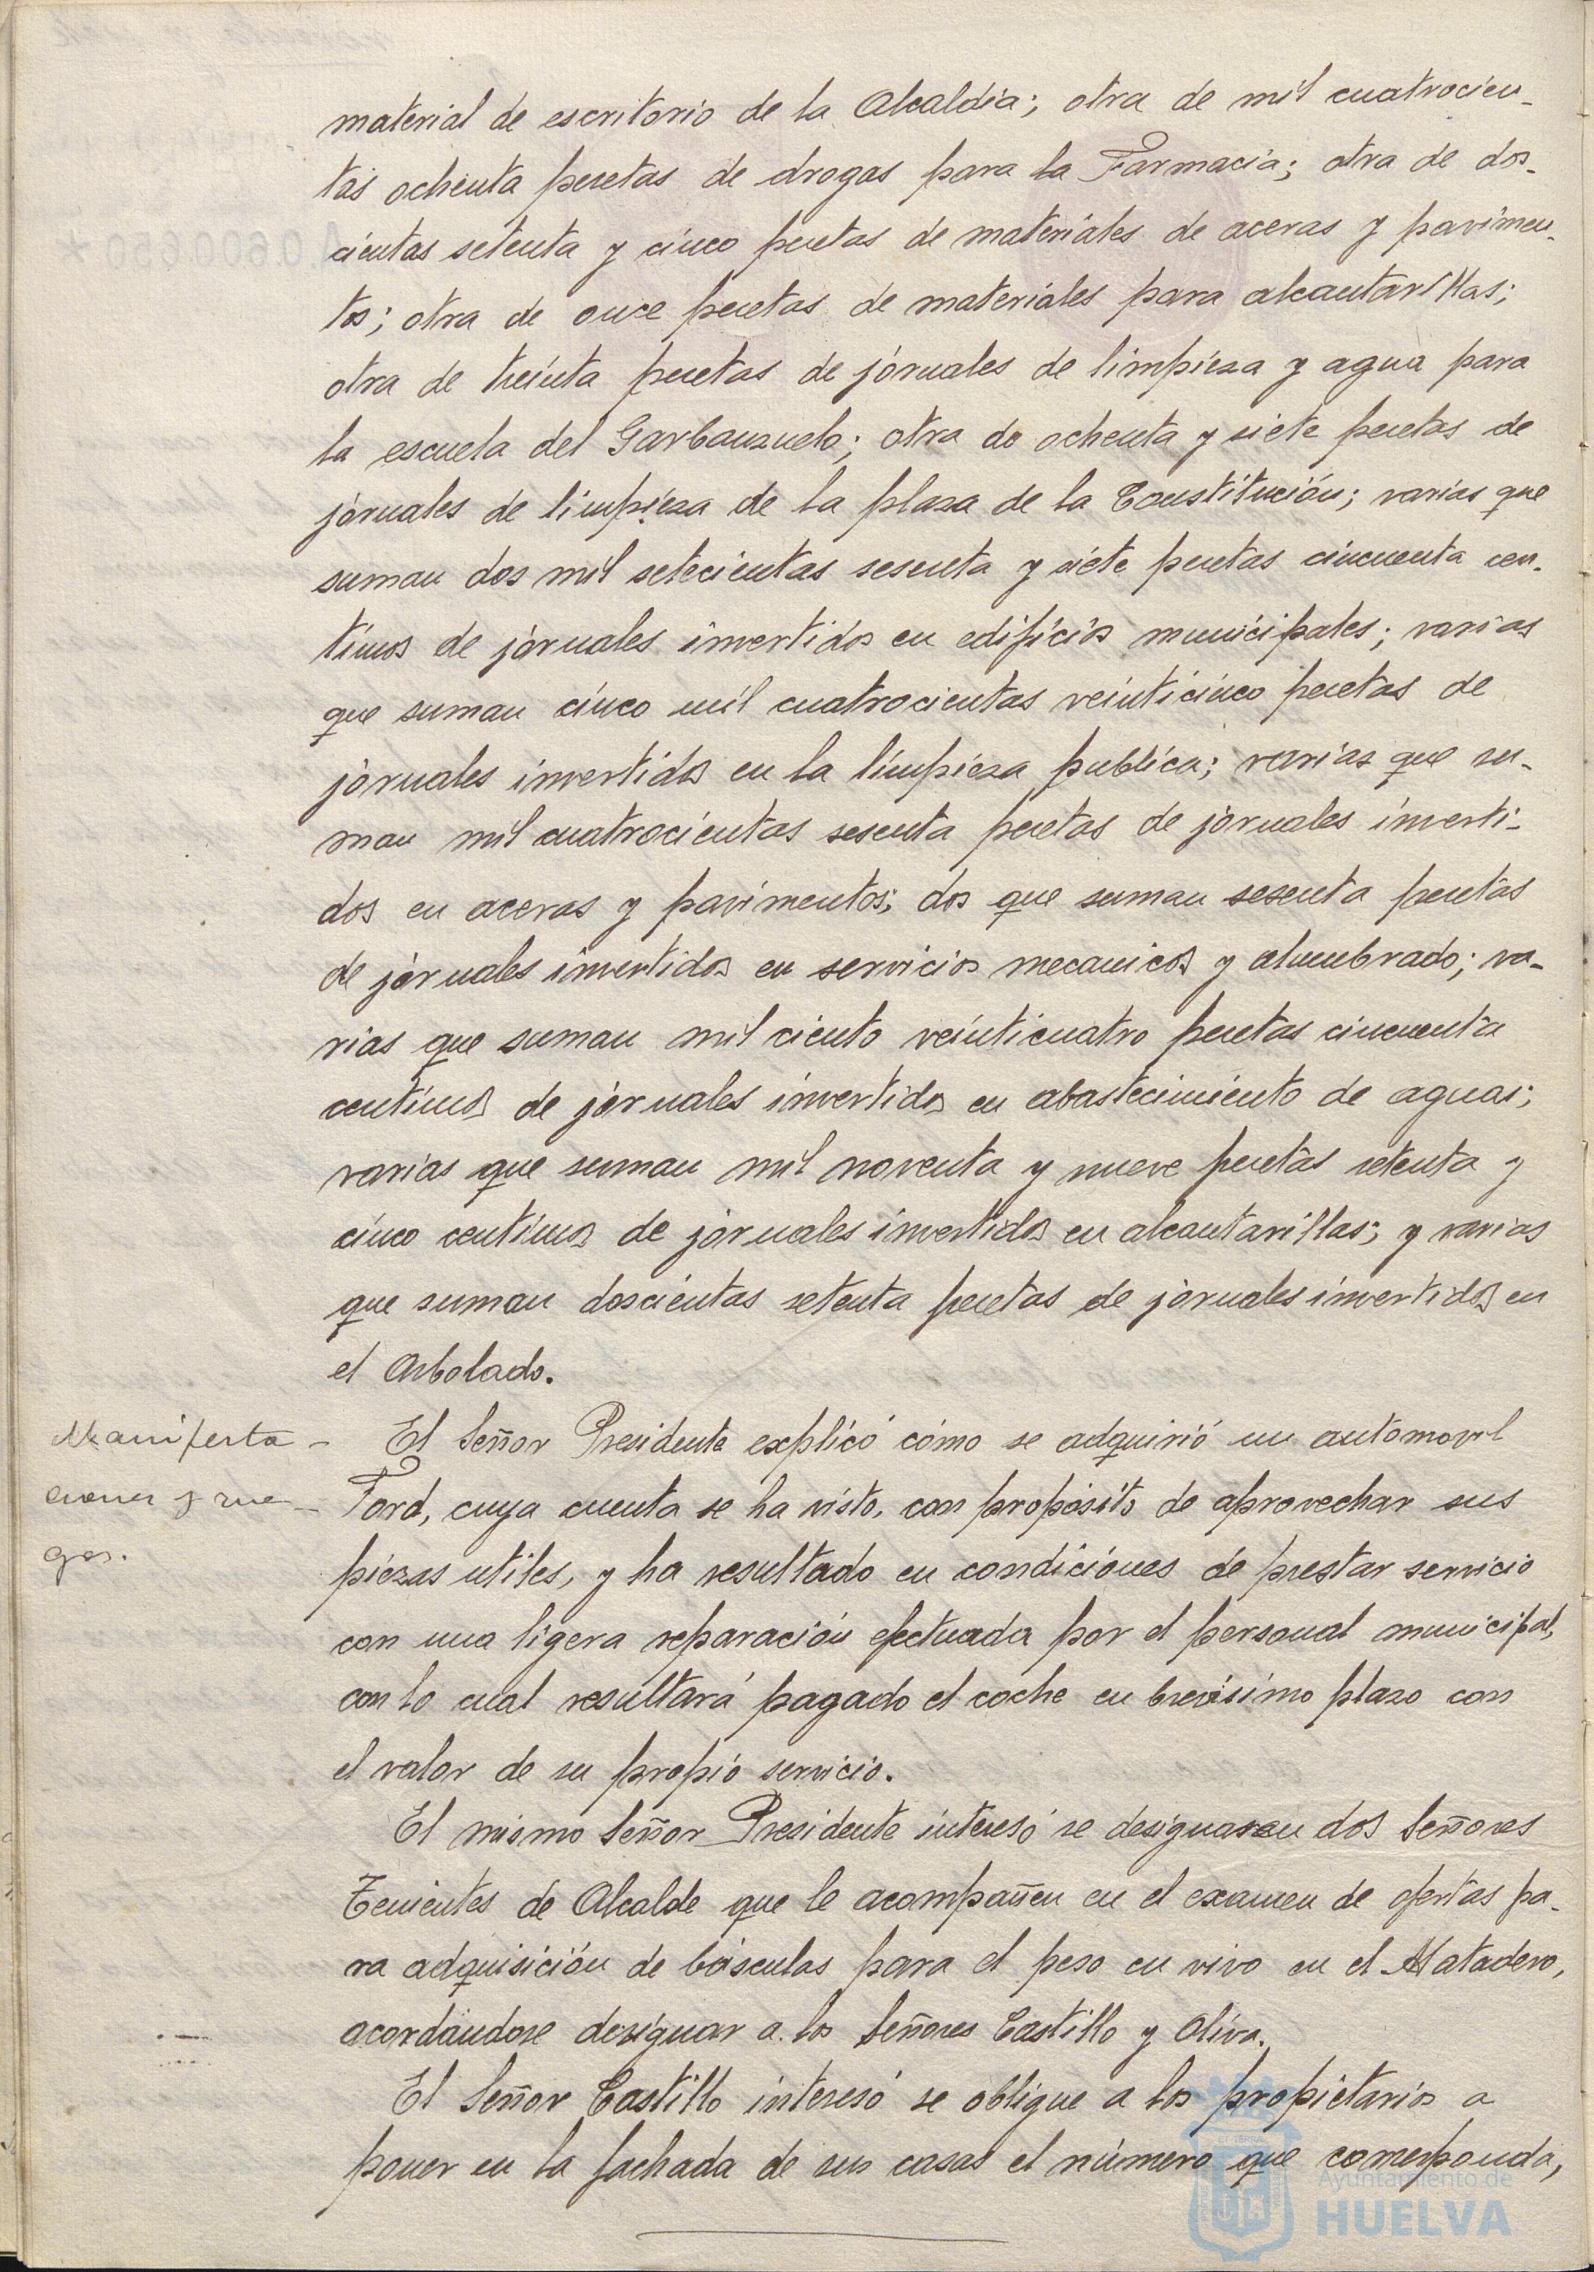 material de escritorio de la Alcaldía; otra de mil cuatrocien-
tas ochenta pesetas de drogas para la Farmacia; otra de dos-
cientas setenta y cinco pesetas de materiales de aceras y pavimen-
tos; otra de once pesetas de materiales para alcantarillas;
otra de treinta pesetas de jornales de limpieza y agua para
la escuela del Garbanzuelo; otra de ochenta y siete pesetas de
jornales de limpieza de la plaza de la Constitución; varias que
suman dos mil setecientas sesenta y siete pesetas cincuenta cen-
timos de jornales invertidos en edificios municipales; varias
que suman cinco mil cuatrocientas veinticinco pesetas de
jornales invertidos en la limpieza publica; varias que su-
man mil cuatrocientas sesenta pesetas de jornales inverti-
dos en aceras y pavimentos; dos que suman sesenta pesetas
de jornales invertidos en servicios mecanicos y alumbrado; va-
rias que suman mil ciento veinticuatro pesetas cincuenta
centimos de jornales invertidos en abastecimiento de aguas;
varias que suman mil noventa y nueve pesetas setenta y
cinco centimos de jornales invertidos en alcantarillas; y varias
que suman doscientas setenta pesetas de jornales invertidos en
el Arbolado.
Manifesta-
ciones y rue-
gos.
El Señor Presidente explicó cómo se adquirió un automovil
Ford, cuya cuenta se ha visto, con propósito de aprovechar sus
piezas utiles, y ha resultado en condiciones de prestar servicio
con una ligera reparación efectuada por el personal municipal,
con lo cual resultará pagado el coche en brevísimo plazo con
el valor de su propio servicio.
El mismo Señor Presidente interesó se designasen dos Señores
Tenientes de Alcalde que le acompañen en el examen de ofertas pa-
ra adquisición de básculas para el peso en vivo en el Matadero,
acordándose designar a los Señores Castillo y Oliva.
El Señor Castillo interesó se obligue a los propietarios a
poner en la fachada de sus casas el número que corresponda,
Ayuntamiento de
HUELVA